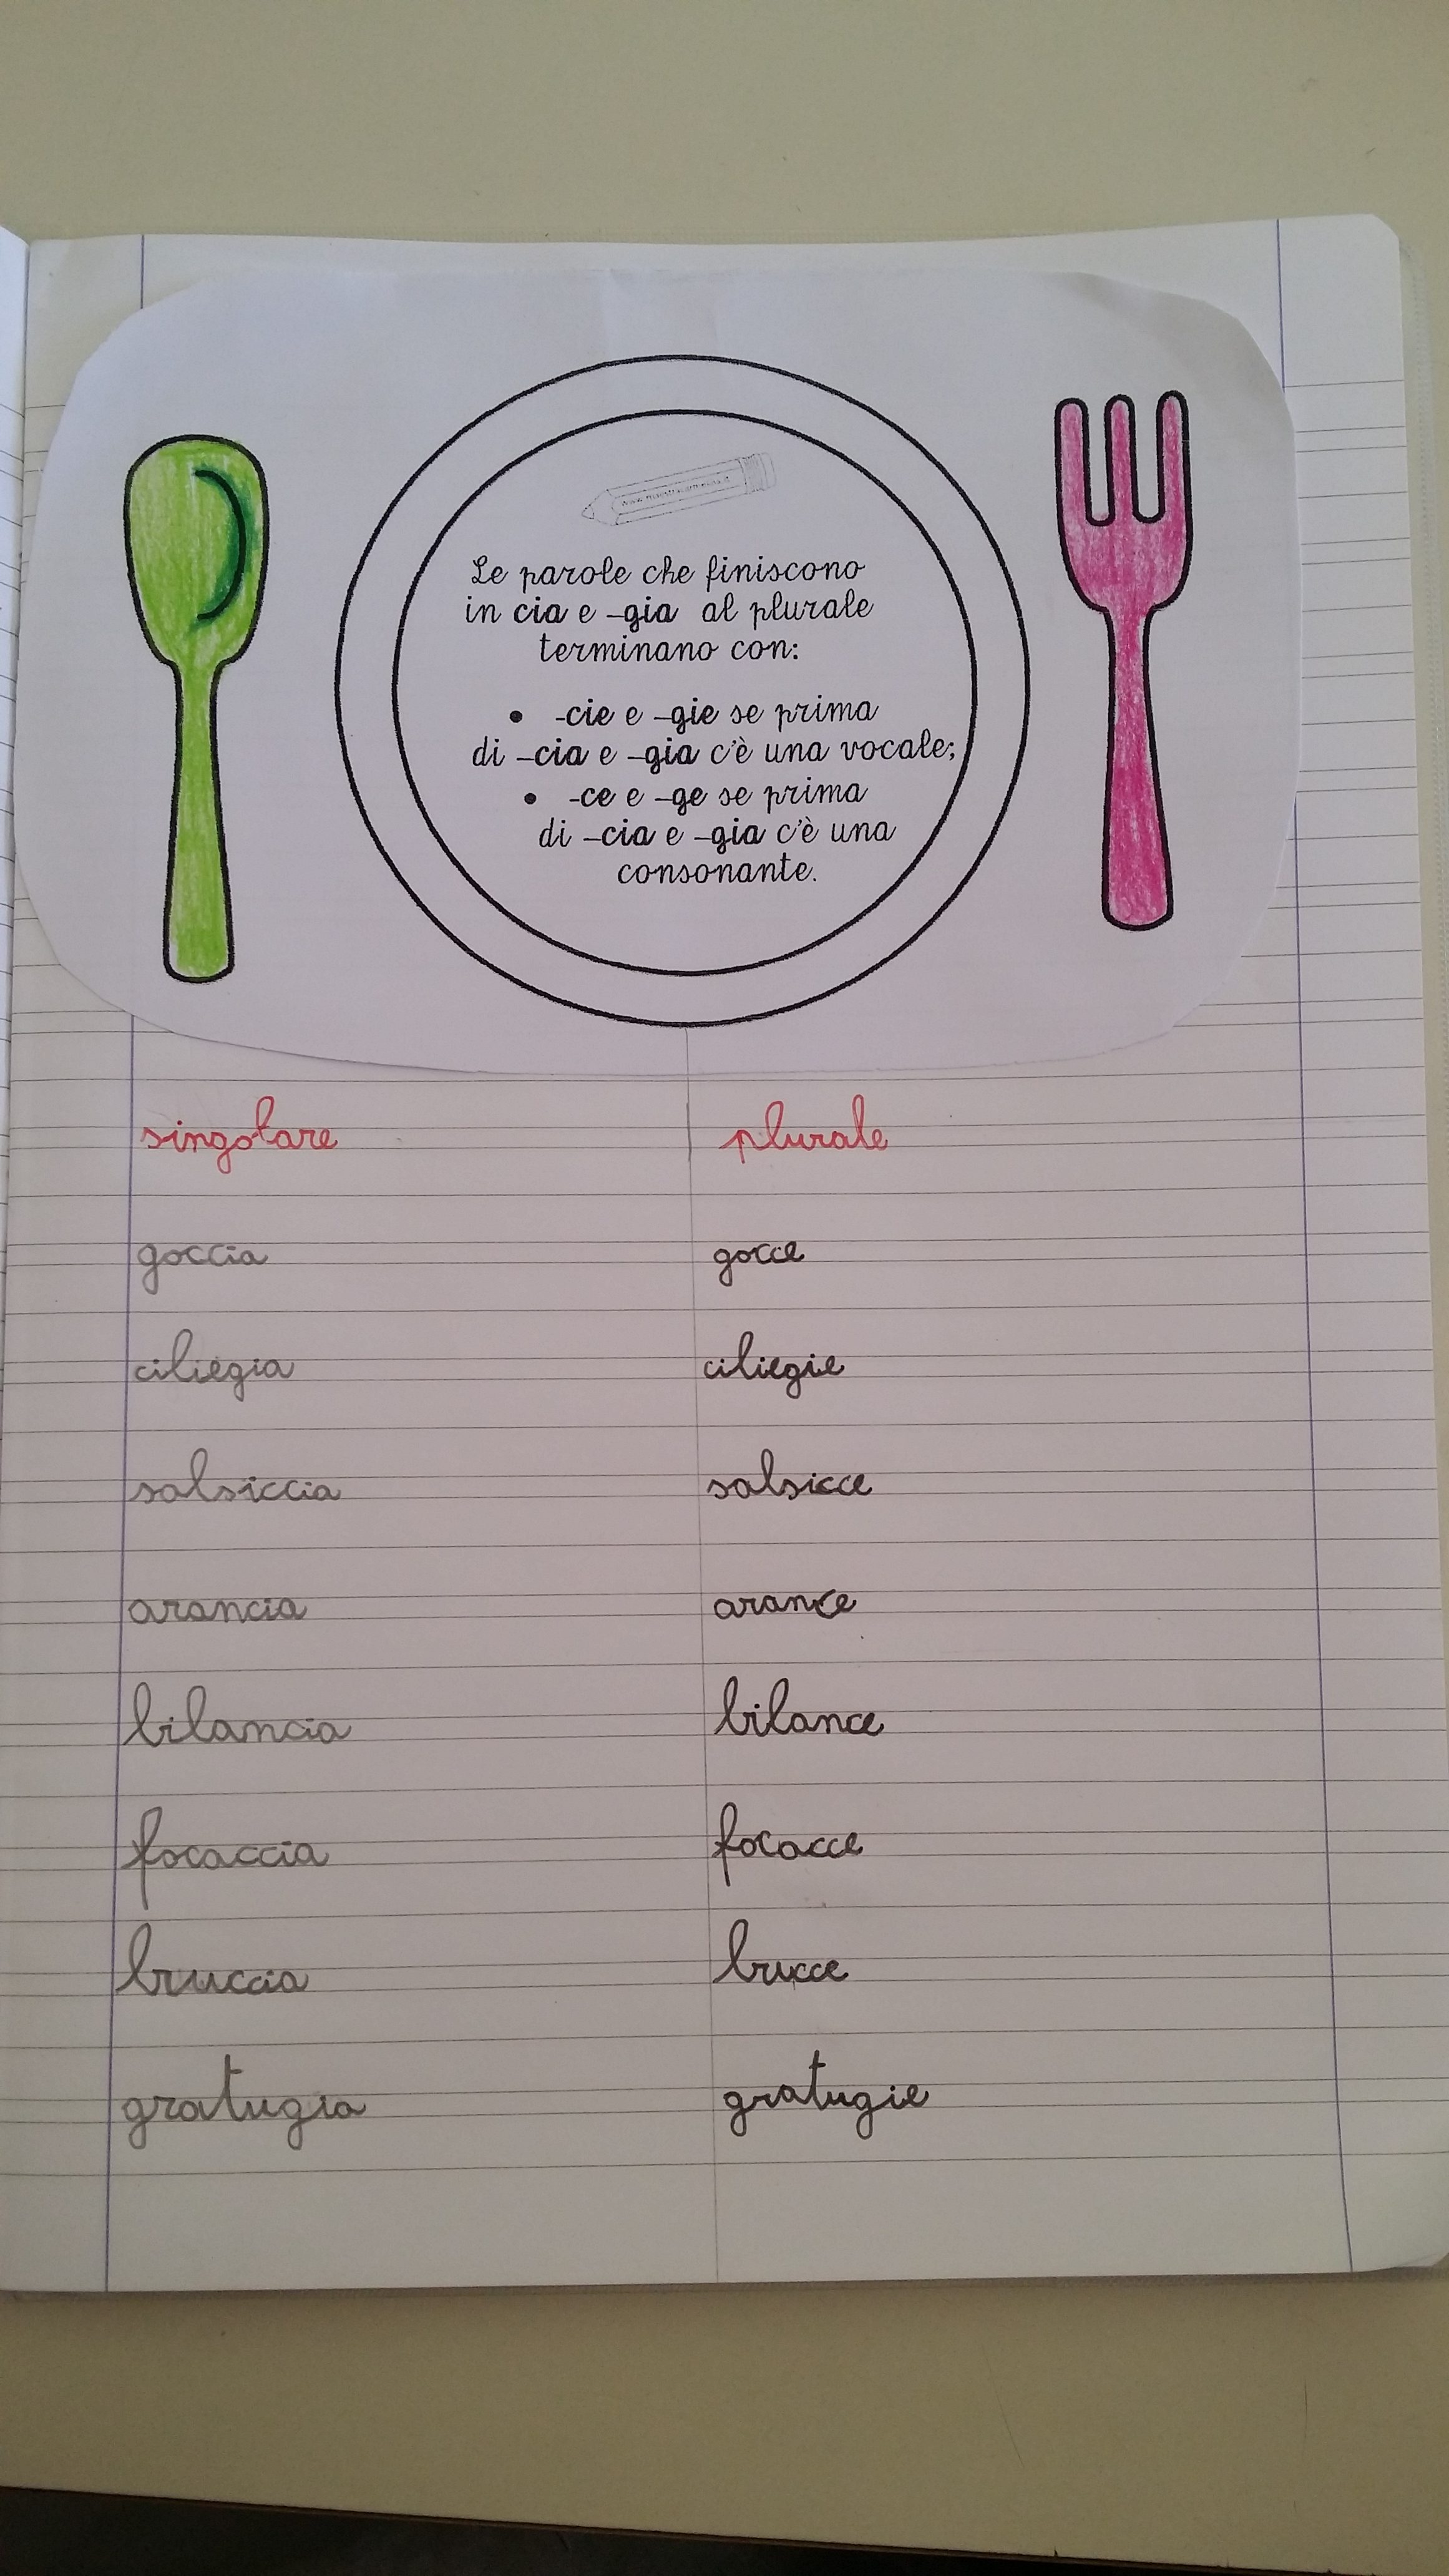 Le parole che finiscono
in cia e -gia al plurale
terminano con:
• -cie e -gie se prima
di -cia e -gia c'è una vocale;
• -ce e -ge se prima
di -cia e -gia c'è una
consonante.
singolare plurale
goccia gocce
ciliegia ciliegie
salsiccia salsicce
arancia arance
bilancia bilance
focaccia focacce
bruccia brucce
gratugia gratugie